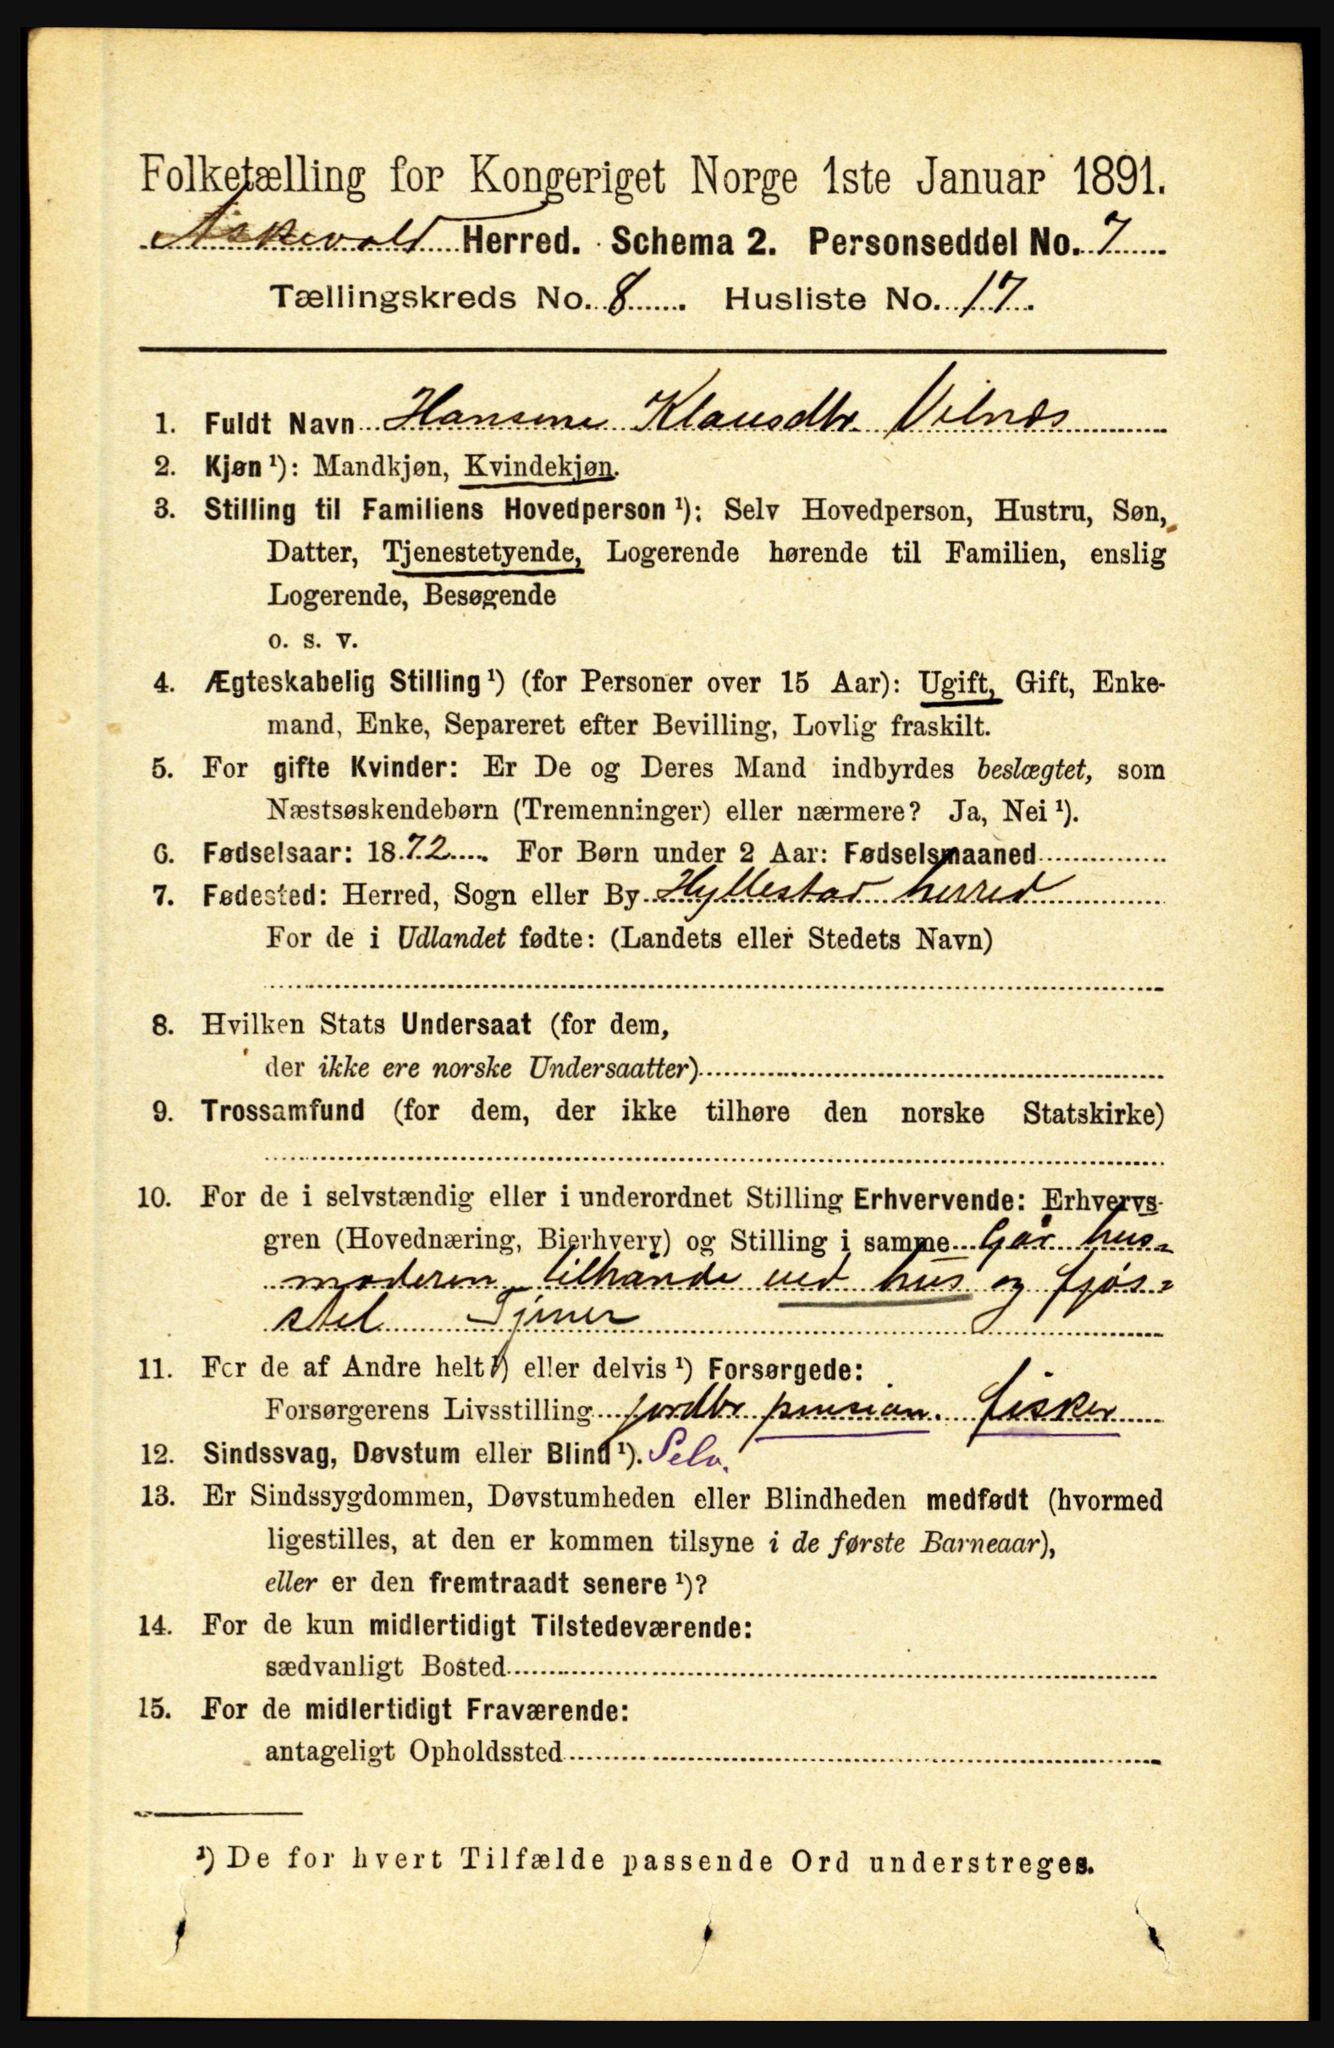 Folketælling for Kongeriget Norge 1ste Januar 1891.
Askevold Herred. Schema 2. Personseddel No. 7
Tællingskreds No. 8. Husliste No. 17.
1. Fuldt Navn Hansine Klausdtr. Vilnes
2. Kjøn ¹): Mandkjøn, Kvindekjøn.
3. Stilling til Familiens Hovedperson ¹): Selv Hovedperson, Hustru, Søn,
Datter, Tjenestetyende, Logerende hørende til Familien, enslig
Logerende, Besøgende
o. s. v.
4. Ægteskabelig Stilling ¹) (for Personer over 15 Aar): Ugift, Gift, Enke-
mand, Enke, Separeret efter Bevilling, Lovlig fraskilt.
5. For gifte Kvinder: Er De og Deres Mand indbyrdes beslægtet, som
Næstsøskendebørn (Tremenninger) eller nærmere? Ja, Nei ¹).
6. Fødselsaar: 1872. For Børn under 2 Aar: Fødselsmaaned
7. Fødested: Herred, Sogn eller By Hyllestad herred
For de i Udlandet fødte: (Landets eller Stedets Navn)
8. Hvilken Stats Undersaat (for dem,
der ikke ere norske Undersaatter)
9. Trossamfund (for dem, der ikke tilhøre den norske Statskirke)
10. For de i selvstændig eller i underordnet Stilling Erhvervende: Erhvervs-
gren (Hovednæring, Bierhverv) og Stilling i samme Går hus-
moderen tilhande ved hus og fjøs-
stel Tjener
11. For de af Andre helt ¹) eller delvis ¹) Forsørgede:
Forsørgerens Livsstilling jordbr fisker
12. Sindssvag, Døvstum eller Blind ¹). Selv.
13. Er Sindssygdommen, Døvstumheden eller Blindheden medfødt (hvormed
ligestilles, at den er kommen tilsyne i de første Barneaar),
eller er den fremtraadt senere ¹)?
14. For de kun midlertidigt Tilstedeværende:
sædvanligt Bosted
15. For de midlertidigt Fraværende:
antageligt Opholdssted
¹) De for hvert Tilfælde passende Ord understreges.